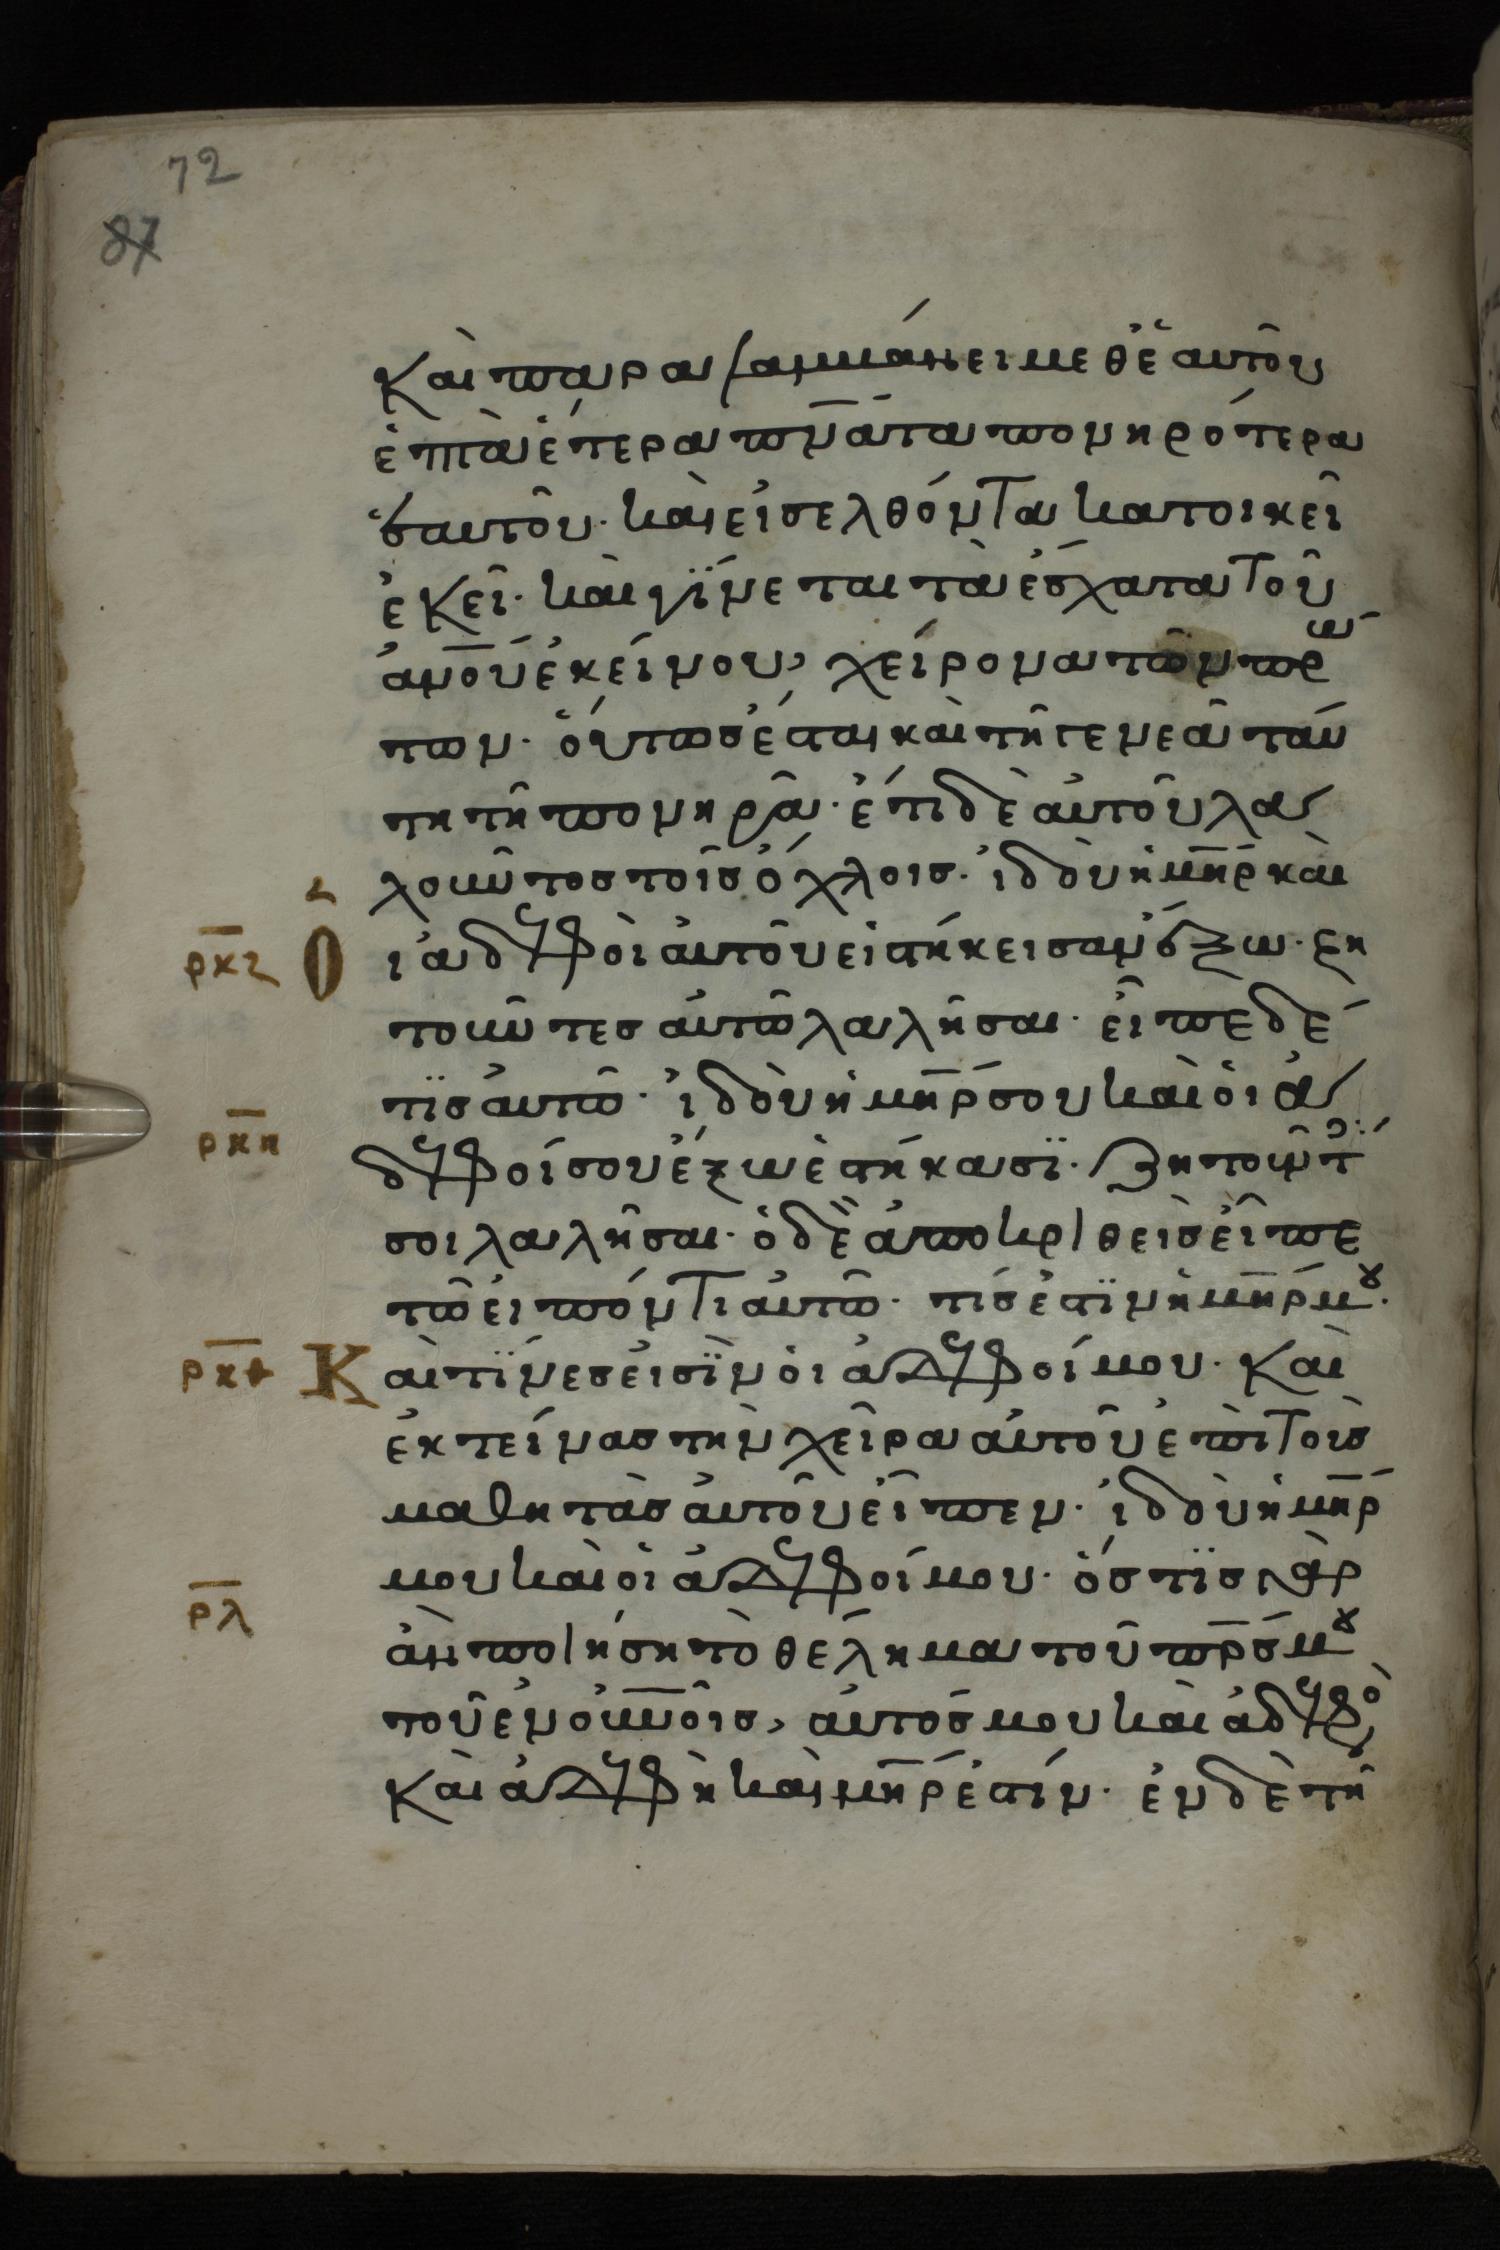 72
87
Καὶ παραλαμβάνει μεθ ἑαυτοῦ
ἑπτὰ ἕτερα πν̅ατα πονηρότερα
ἑαυτοῦ· καὶ εἰσελθόντα κατοικεῖ
ἐκεῖ· καὶ γίνεται τὰ ἔσχατα τοῦ
ἀν̅ου ἐκείνου, χείρονα τῶν πρώ
των· οὕτως ἔσται καὶ τῆ γενεᾶ ταύ
τη τῆ πονηρᾶ· ἔτι δὲ αὐτοῦ λα
λοῦντος τοῖς ὄχλοις· ἰδοὺ ἡ μη̅ρ καὶ
ρκζ Ο ἱ ἀδελφοὶ αὐτοῦ εἱστήκεισαν ἔξω· ζη
τοῦντες αὐτῶ λαλῆσαι· εἶπε δέ
τϊς αὐτῶ· ἰδοὺ ἡ μη̅ρ σου καὶ οἱ ἀ
ρκη δελφοί σου ἔξω ἑστήκασϊ· ζητοῦντες
σοι λαλῆσαι· ὁ δὲ ἀποκριθεὶς εἶπε
τῶ εἰπόντι αὐτῶ· τίς ἐστϊν ἡ μη̅ρ μου·
ρκθ Καὶ τΐνες εἰσϊν οἱ ἀδελφοί μου· Καὶ
ἐκτείνας τὴν χεῖρα αὐτοῦ ἐπὶ τοὺς
μαθητὰς αὐτοῦ εἶπεν· ἰδοὺ ἡ μη̅ρ
μου καὶ οἱ ἀδελφοί μου· ὅστϊς γὰρ
ρλ ἂν ποιήση τὸ θέλημα τοῦ πρ̅ς μου
τοῦ ἐν οὐν̅οις, αὐτός μου καὶ ἀδελφὸς
Καὶ ἀδελφὴ καὶ μη̅ρ ἐστίν· ἐν δὲ τῆ